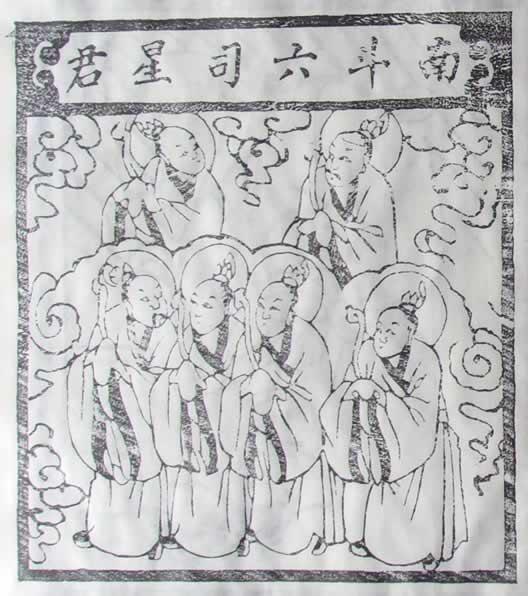 南斗六司星君